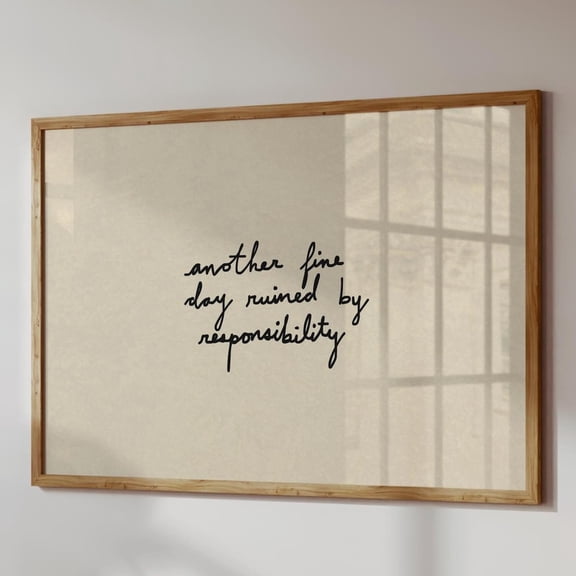 another fine
day ruined by
responsibility